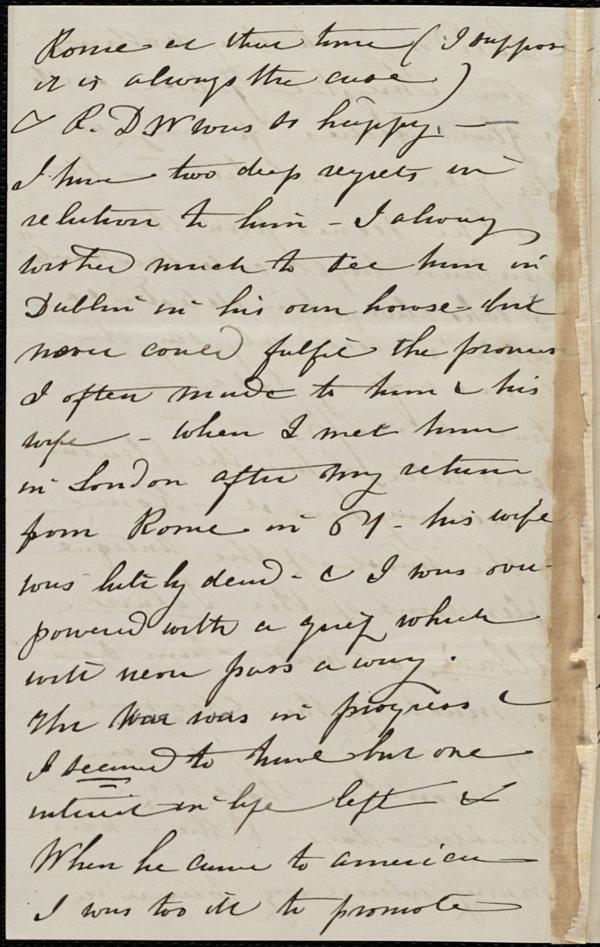 Rome at that time (I suppose
it is always the case)
& R. D W was so happy. —
I have two deep regrets in
relation to him - I always
wished much to see him in
Dublin in his own house - but
never could fulfil the promise
I often made to him & his
wife - When I met him
in London after my return
from Rome in - his wife
was lately dead - & I was over
powered with a grief which
will never pass away.
The War was in progress &
I seemed to have but one
interest in life left &
When he came to america
I was too ill to promote